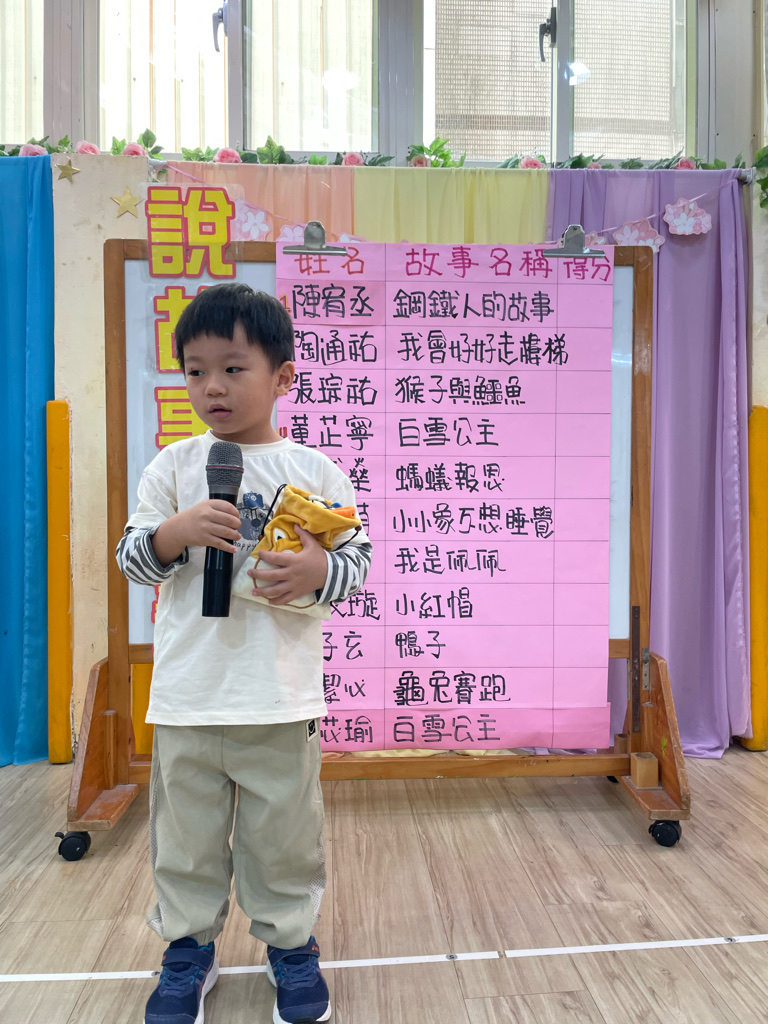 說故事
姓名 故事名稱 得分
陳宥丞 鋼鐵人的故事
陶通祐 我會好好走樓梯
張琮祐 猴子與鱷魚
董芷寧 白雪公主
榮 螞蟻報恩
小小象不想睡覺
我是佩佩
璇 小紅帽
子玄 鴨子
絜心 龜兔賽跑
苡瑜 白雪公主